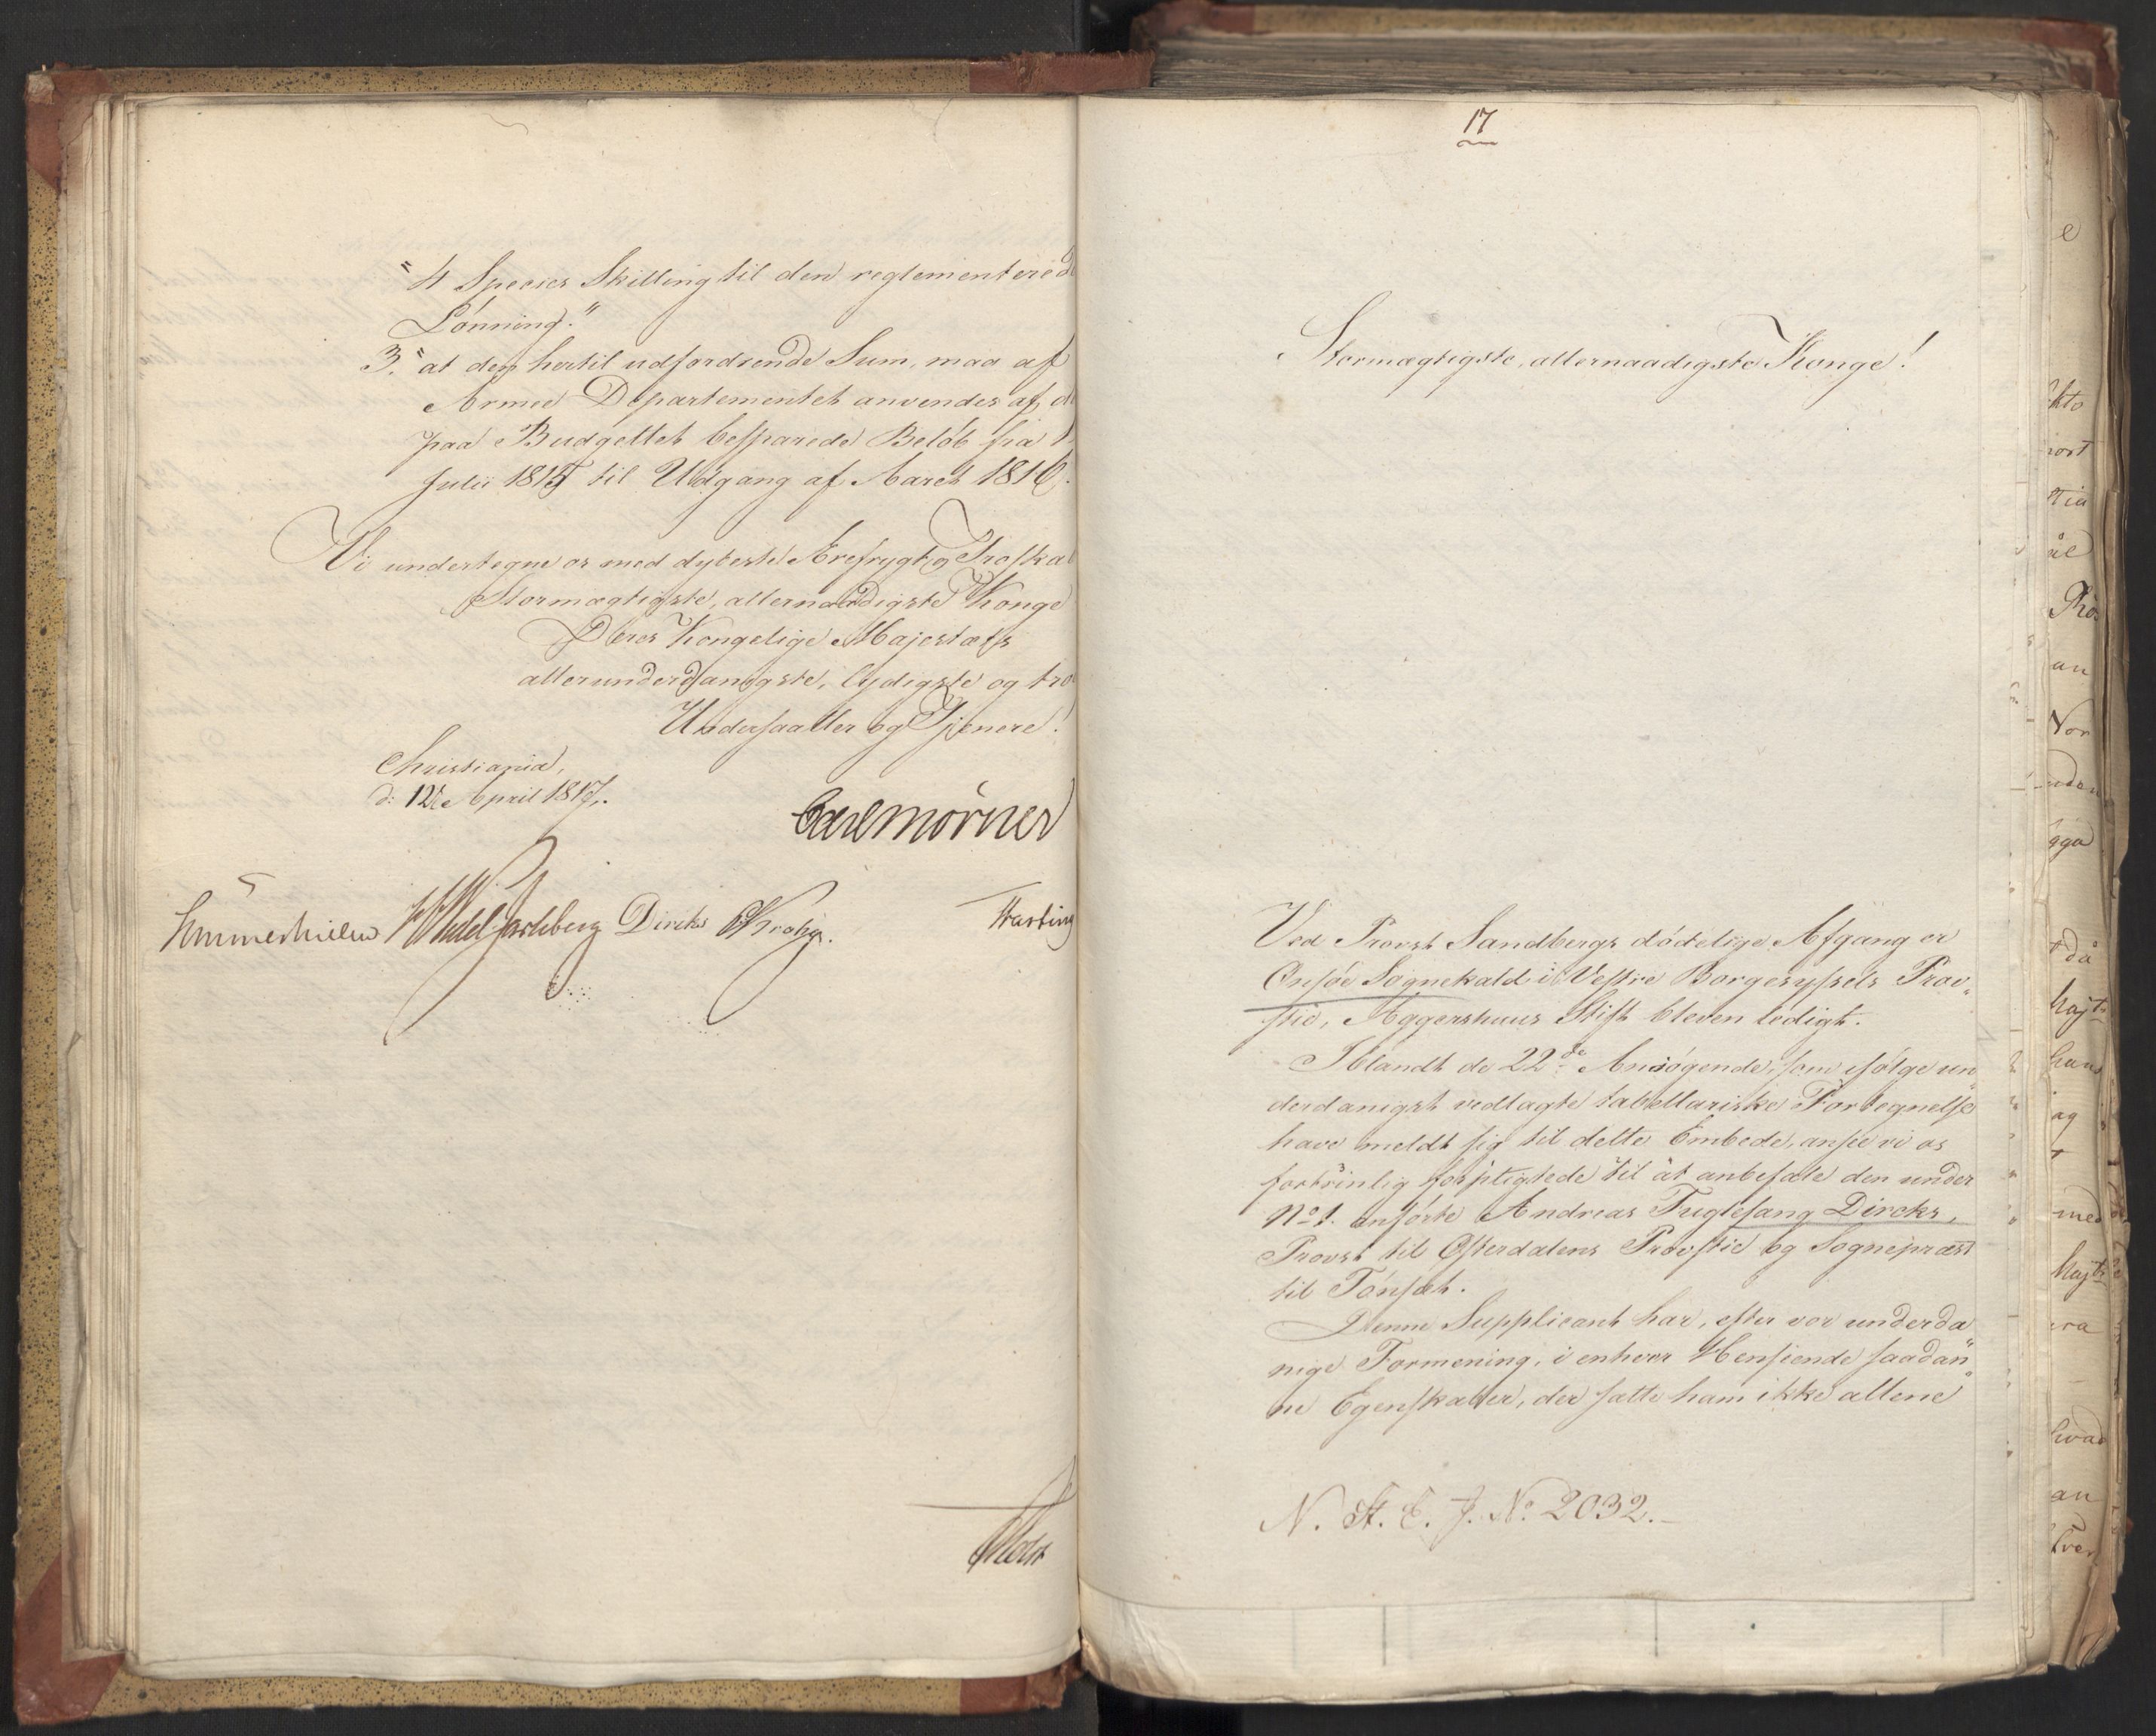 "4 Species Skilling til den reglementerede
Lønning."
3." at den hertil udfordrende Sum, maa af
Armee Departementet anvendes af d
paa Budgettet besparede Beløb fra 1
Julii 1815 til Udgang af Aaret 1816.
Vi undertegne os med dybeste Ærefrygt og Troskab
Stormægtigste, allernaadigste Konge
Deres Kongelige Majestæts
allerunderdanigste, lydigste og tro
Undersaatter og Tjenere!
Christiania,
d: 12te April 1817.
Carl Mörner
Sommerhielm HWedel Jarlsberg Diriks CKrohg. Hasting
Holst
17
Stormægtigste, allernaadigste Konge!
Ved Provst Sandbergs dødelige Afgang er
Onsøe Sognekald i Vestre Borgesyssels Prov„
stie, Aggershuus Stift bleven ledigt.
Iblandt de 22de Ansøgende, som ifølge un„
derdanigst vedlagte tabellariske Fortegnelse
have meldt sig til dette Embede, ansee vi os
fortrinlig forpligtede til at anbefale den under
No 1. anførte Andreas Fuglesang Dircks,
Provst til Østerdalens Provstie og Sognepræst
til Tønset.
Denne Supplicant har, efter vor underda„
nige Formening, i enhver Henseende saadan„
ne Egenskaber, der satte ham ikke allene
N. St. E. J. No 2032.